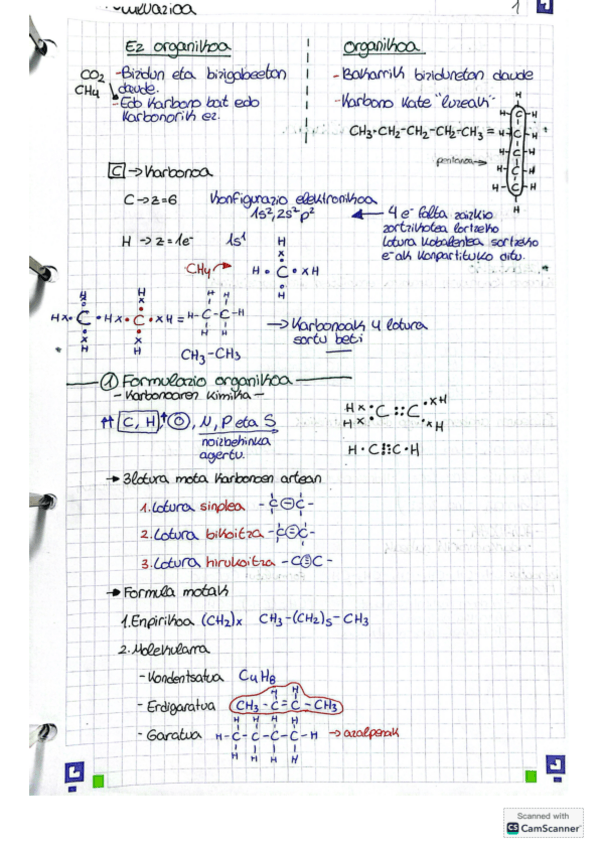 1
Ez organikoa
organikoa
CO2
CH4
-Bizidun eta bizigabeetan
daude.
-Edo karbono bat edo
karbonorik ez.
- Bakarrik bizidunetan daude
-Karbono kate "luzeak"
CH3-CH2-CH2-CH2-CH3 =
pentanoa→
C → Karbonoa
C→z=6
Konfigurazio elektronikoa
1s², 2s² p²
← 4 e⁻ falta zaizkio
zortzikotea lortzeko
lotura kobalentea sortzeko
e⁻ak konpartituko ditu.
H → z=1e⁻
1s¹
CH4
CH3-CH3
→ Karbonoak 4 lotura
sortu beti
① Formulazio organikoa
- Karbonoaren kimika -
C, H, O, N, P eta S
noizbehinka
agertu.
H·C⁝⁝C·H
→ 3 lotura mota karbonoen artean
1. Lotura sinplea -C-C-
2. Lotura bikoitza -C=C-
3. Lotura hirukoitza -C≡C-
→ Formula motak
1. Enpirikoa (CH2)x CH3-(CH2)5-CH3
2. Molekularra
- Kondentsatua C4H8
- Erdigaratua CH3-C=C-CH3
- Garatua H-C-C-C-C-H → azalpenak
Scanned with
CS CamScanner